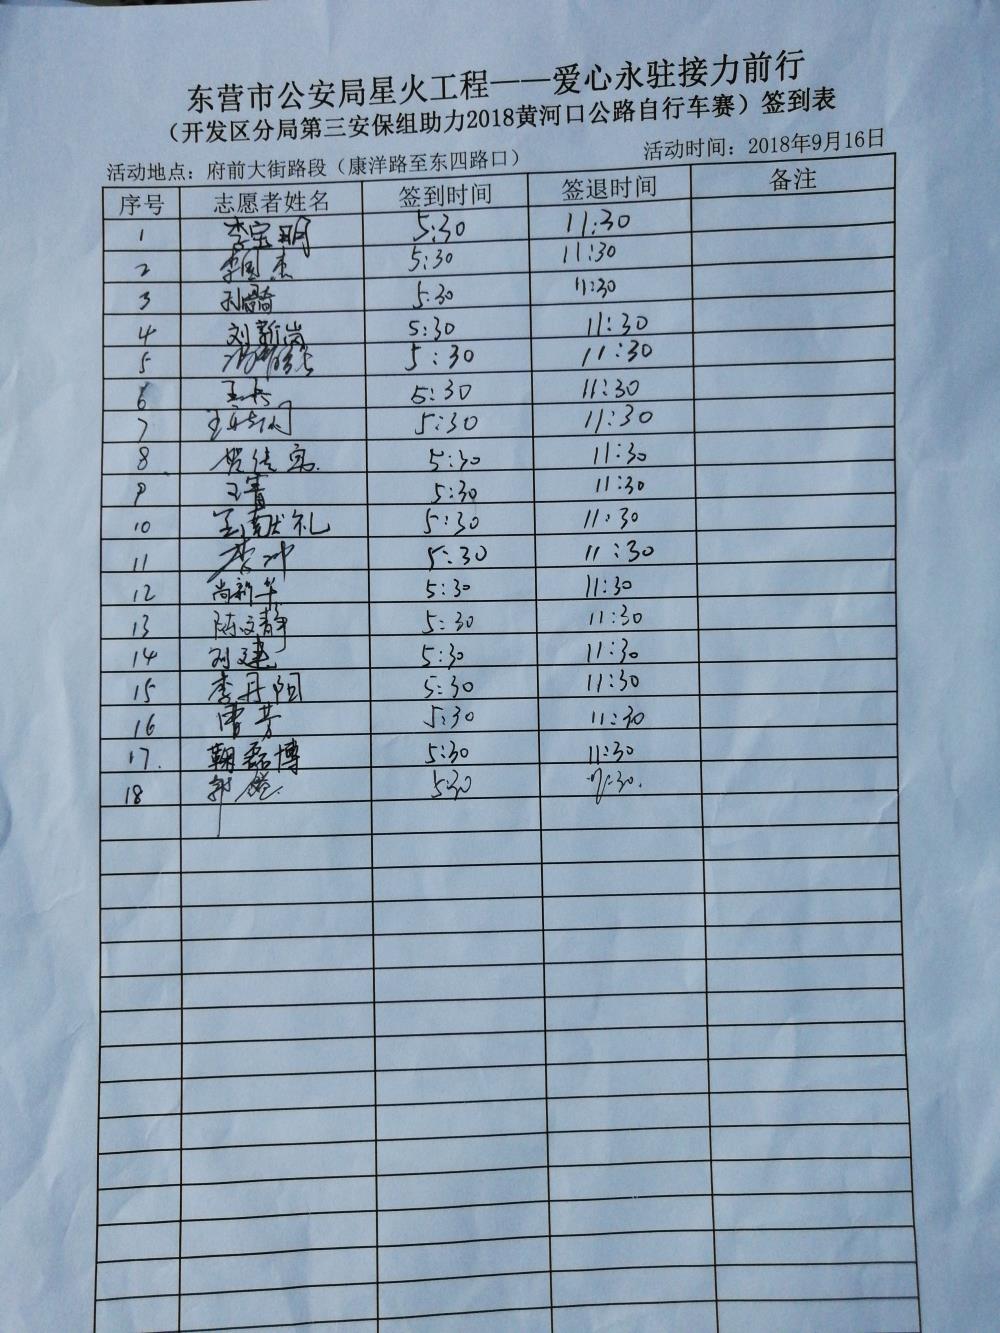 东营市公安局星火工程——爱心永驻接力前行
（开发区分局第三安保组助力2018黄河口公路自行车赛）签到表
活动地点：府前大街路段（康洋路至东四路口） 活动时间：2018年9月16日
序号 志愿者姓名 签到时间 签退时间 备注
1 李宝明 5:30 11:30
2 李国杰 5:30 11:30
3 5:30 11:30
4 刘新岗 5:30 11:30
5 5:30 11:30
6 5:30 11:30
7 5:30 11:30
8 5:30 11:30
9 王霄 5:30 11:30
10 献礼 5:30 11:30
11 李冲 5:30 11:30
12 尚新华 5:30 11:30
13 陈文静 5:30 11:30
14 刘建 5:30 11:30
15 李丹阳 5:30 11:30
16 雷芳 5:30 11:30
17. 鞠磊博 5:30 11:30
18 郭 5:30 11:30.